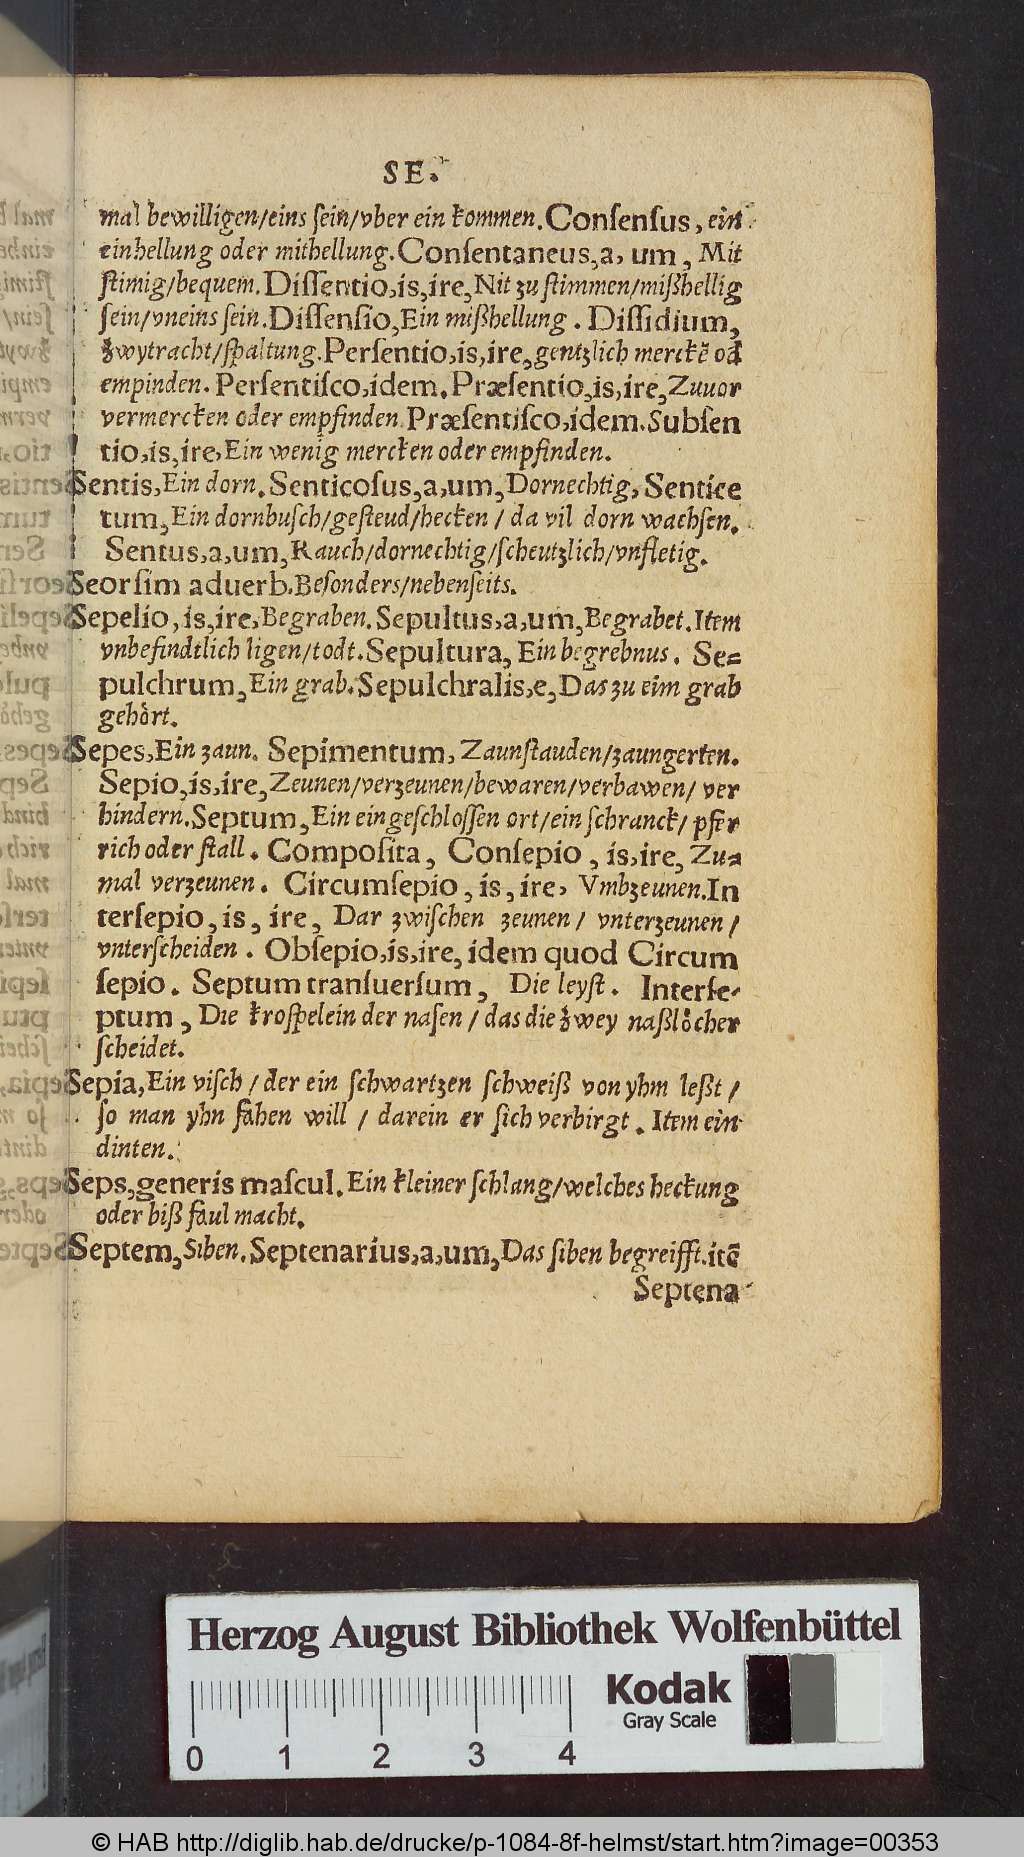 SE.
mal bewilligen/eins ſein/vber ein kommen. Conſenſus, ein
einhellung oder mithellung. Conſentaneus,a, um, Mit
ſtimig/bequem. Diſſentio,is,ire, Nit zu ſtimmen/mißhellig
ſein/vneins ſein. Diſſenſio, Ein mißhellung. Diſſidium,
zwytracht/ſpaltung. Perſentio,is,ire, gentzlich merckẽ od
empinden. Perſentiſco,idem. Præſentio,is,ire, Zuuor
vermercken oder empfinden. Præſentiſco,idem. Subſen
tio,is,ire, Ein wenig mercken oder empfinden.
Sentis, Ein dorn. Senticoſus,a,um, Dornechtig, Sentice
tum, Ein dornbuſch/geſteud/hecken / da vil dorn wachſen.
Sentus,a,um, Rauch/dornechtig/ſcheutzlich/vnfletig.
Seorſim aduerb. Beſonders/nebenſeits.
Sepelio, is,ire, Begraben. Sepultus,a,um, Begrabet. Item
vnbefindtlich ligen/todt. Sepultura, Ein begrebnus. Se=
pulchrum, Ein grab. Sepulchralis,e, Das zu eim grab
gehoͤrt.
Sepes, Ein zaun. Sepimentum, Zaunſtauden/zaungerten.
Sepio,is,ire, Zeunen/verzeunen/bewaren/verbawen/ ver
hindern. Septum, Ein eingeſchloſſen ort/ein ſchranck/ pfer
rich oder ſtall. Compoſita, Conſepio, is,ire, Zu=
mal verzeunen. Circumſepio, is, ire, Vmbzeunen. In
terſepio, is, ire, Dar zwiſchen zeunen/ vnterzeunen/
vnterſcheiden. Obſepio,is,ire, idem quod Circum
ſepio. Septum tranſuerſum, Die leyſt. Interſe-
ptum, Die kroſpelein der naſen / das die zwey naßloͤcher
ſcheidet.
Sepia, Ein viſch / der ein ſchwartzen ſchweiß von yhm leßt /
ſo man yhn fahen will / darein er ſich verbirgt. Item ein
dinten.
Seps, generis maſcul. Ein kleiner ſchlang/welches heckung
oder biß faul macht.
Septem, Siben. Septenarius,a,um, Das ſiben begreifft. itẽ
Septena
Herzog August Bibliothek Wolfenbüttel
Kodak
Gray Scale
0 1 2 3 4
© HAB http://diglib.hab.de/drucke/p-1084-8f-helmst/start.htm?image=00353